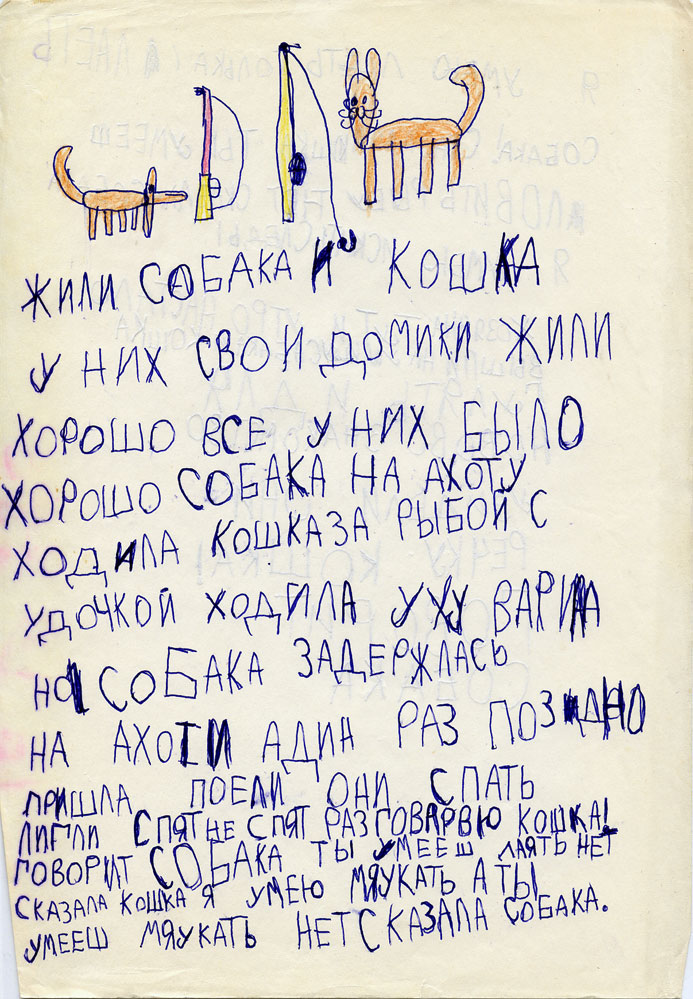 ЖИЛИ СОБАКА И КОШКА
У НИХ СВОИ ДОМИКИ ЖИЛИ
ХОРОШО ВСЕ У НИХ БЫЛО
ХОРОШО СОБАКА НА АХОТУ
ХОДИЛА КОШКА ЗА РЫБОЙ С
УДОЧКОЙ ХОДИЛА УХУ ВАРИЛА
НО СОБАКА ЗАДЕРЖЛАСЬ
НА АХОТИ АДИН РАЗ ПОЗДНО
ПРИШЛА ПОЕЛИ ОНИ СПАТЬ
ЛИГЛИ СПЯТ НЕ СПЯТ РАЗГОВАРВЮ КОШКА!
ГОВОРИТ СОБАКА ТЫ УМЕЕШ ЛАЯТЬ НЕТ
СКАЗАЛА КОШКА Я УМЕЮ МЯУКАТЬ А ТЫ
УМЕЕШ МЯУКАТЬ НЕТ СКАЗАЛА СОБАКА.